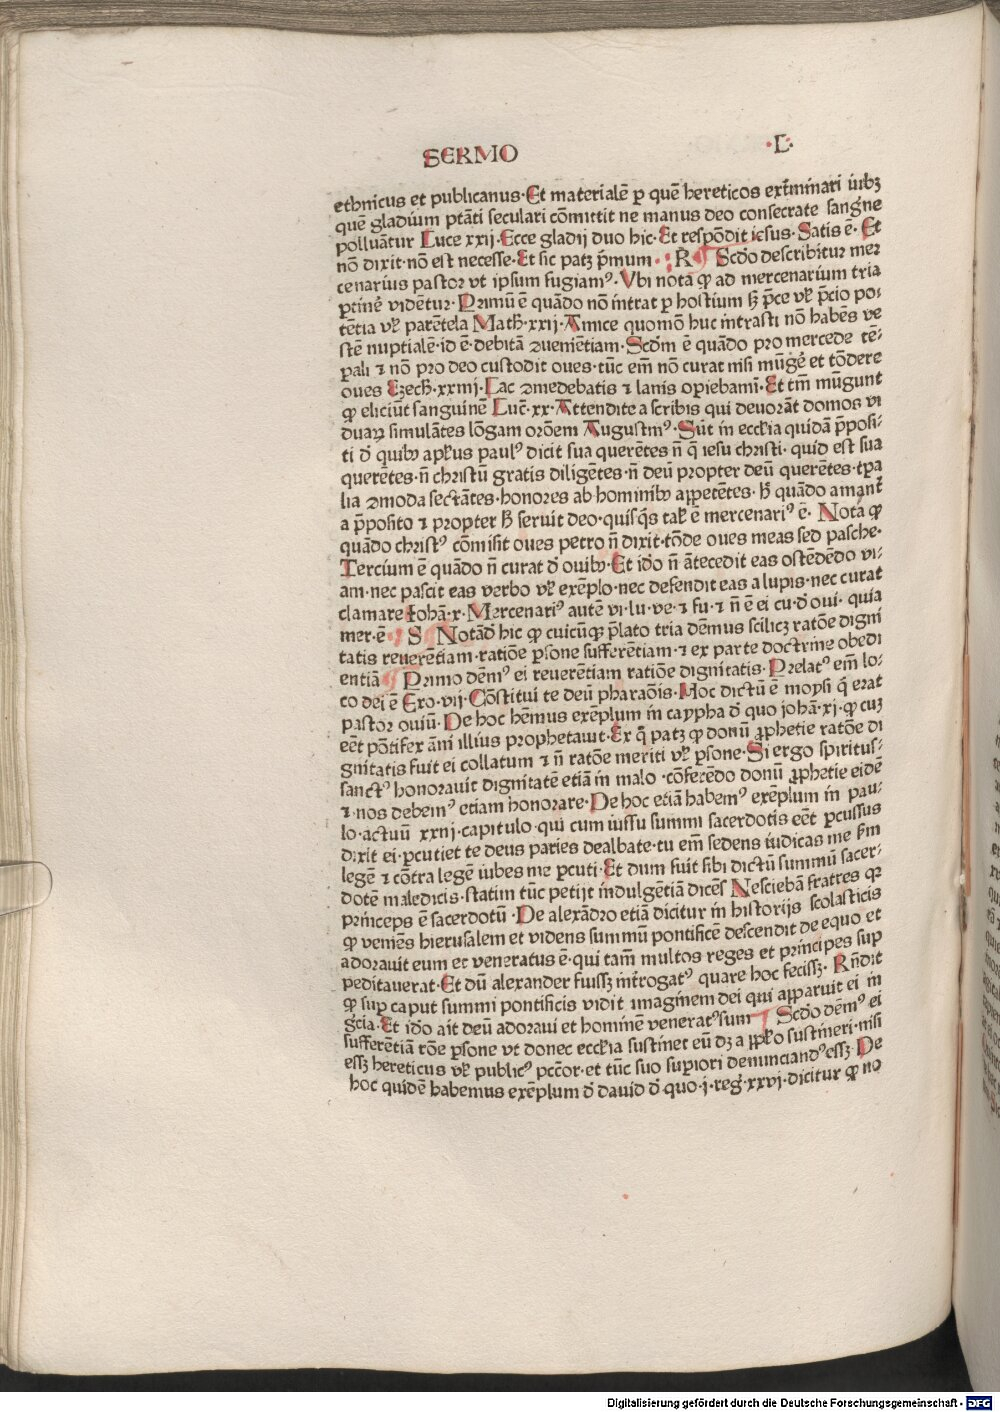 SERMO ·L·
ethnicus et publicanus·Et materialē ꝑ quē hereticos exͭminari iubꝫ
quē gladium ptāti seculari cōmittit ne manus deo consecrate sangͥne
polluātur Luce xxij·Ecce gladij duo hic·Et respōdit iesus·Satis ē·Et
nō dixit·nō est necesse·Et sic patꝫ p̄mum·:R Scḋo describitur mer
cenarius pastor vt ipsum fugiamꝰ·Vbi nota ꝙ ad mercenarium tria
ꝑtinē vidētur·Primū ē quādo nō intrat ꝑ hostium ſꝫ p̄ce vl̓ p̄cio po-
tētia vl̓ parētela Math·xxij·Amice quomō huc intrasti nō habēs ve
stē nuptialē·id ē·debitā ꝯueniētiam·Scḋm ē quādo pro mercede tē-
ꝑali ⁊ nō pro deo custodit oues·tūc em̄ nō curat nisi mūgē et tōdere
oues Ezech·xxxiiij·Lac ꝯmedebatis ⁊ lanis oꝑiebamī·Et tm̄ mūgunt
ꝙ eliciūt sanguinē Luc̄·xx·Attendite a scribis qui deuorāt domos vi
duaꝝ simulātes lōgam orōem Augustinꝰ·Sūt in eccl̓ia quidā p̄posi-
ti d̓ quibꝰ apl̓us paulꝰ dicit sua querētes n̄ q̄ iesu christi·quid est sua
querētes·n̄ christū gratis diligētes·n̄ deū propter deū querētes·tꝑa
lia ꝯmoda sectātes·honores ab hominibꝰ appetētes·h̓ quādo amant͛
a p̄posito ⁊ propter h̓ seruit deo·quisqͥs tal̓ ē mercenariꝰ ē·Nota ꝙ
quādo christꝰ cōmisit oues petro n̄ dixit·tōde oues meas sed pasche·
Tercium ē quādo n̄ curat d̓ ouibꝰ·Et idō n̄ ātecedit eas ostēdēdo vi-
am·nec pascit eas verbo vl̓ exēplo·nec defendit eas a lupis·nec curat
clamare Iohā·x·Mercenariꝰ autē vi·lu·ve·⁊ fu·⁊ n̄ ē ei cu·d̓ oui·quia
mer·ē· S Notād̓ hic ꝙ cuicūqꝫ p̄lato tria dēmus scilicꝫ ratōe digni
tatis reuerētiam·ratiōe ꝑsone sufferētiam·⁊ ex parte doctrine obedi
entiā Primo dēmꝰ ei reuerētiam ratiōe dignitatis·Prelatꝰ em̄ lo-
co dei ē Ero·vij·Cōstitui te deū pharaōis·Hoc dictū ē moysi qͥ erat
pastor ouiū·De hoc hēmus exēplum in caypha d̓ quo johā·xj·ꝙ cuꝫ
eēt pōtifex āni illius prophetauit·Ex qͦ patꝫ ꝙ donū ꝓphetie ratōe di
gnitatis fuit ei collatum ⁊ n̄ ratōe meriti vl̓ ꝑsone·Si ergo spiritus-
sanctꝰ honorauit dignitatē etiā in malo·cōferēdo donū ꝓphetie eidē
⁊ nos debemꝰ etiam honorare·De hoc etiā habemꝰ exēplum in pau-
lo·actuū xxiij·capitulo·qui cum iussu summi sacerdotis eēt ꝑcussus
dixit ei·ꝑcutiet te deus paries dealbate·tu em̄ sedens iudicas me ẜm
legē ⁊ cōtra legē iubes me ꝑcuti·Et dum fuit sibi dictū summū sacer-
dotē maledicis·statim tūc petijt indulgētiā dicēs Nesciebā fratres qꝛ
princeps ē sacerdotū·De alexādro etiā dicitur in historijs scolasticis
ꝙ veniēs hierusalem et videns summū pontificē descendit de equo et
adorauit eum et veneratus ē·qui tam̄ multos reges et principes sup
peditauerat·Et dū alexander fuissꝫ int̓rogatꝰ quare hoc fecissꝫ·Rn̄dit
ꝙ suꝑ caput summi pontificis vidit imaginem dei qui apparuit ei in
gͤcia·Et idō ait deū adoraui et hominē veneratꝰ sum Scḋo dēmꝰ ei
sufferētiā rōe ꝑsone vt donec eccl̓ia sustinet eū dꝫ a ppl̓o sustineri·nisi
essꝫ hereticus vl̓ publicꝰ pcc̄or·et tūc suo suꝑiori denunciandꝰ essꝫ·De
hoc quidē habemus exēplum d̓ dauid d̓ quo·j·reg̓·xxvj·dicitur ꝙ no
Digitalisierung gefördert durch die Deutsche Forschungsgemeinschaft - DFG